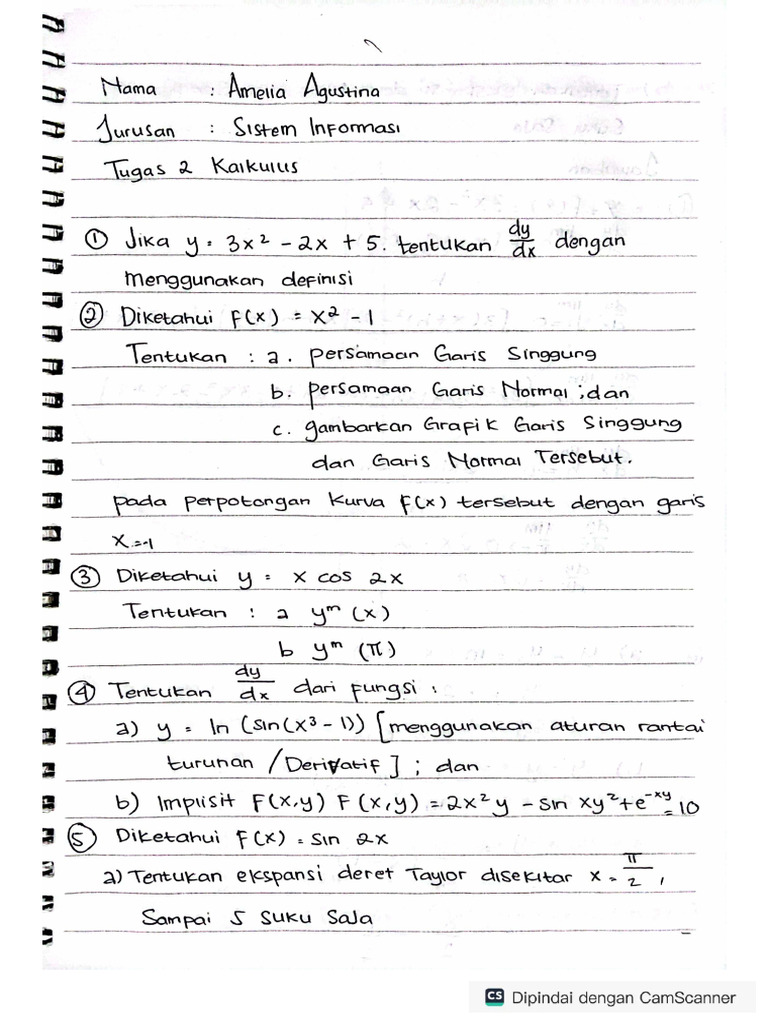 Nama : Amelia Agustina
Jurusan : Sistem Informasi
Tugas 2 Kalkulus
① Jika y = 3x² - 2x + 5. tentukan dy/dx dengan
menggunakan definisi
② Diketahui F(x) = x² - 1
Tentukan : a. persamaan Garis Singgung
b. persamaan Garis Normal ; dan
c. gambarkan Grafik Garis Singgung
dan Garis Normal Tersebut.
pada perpotongan kurva F(x) tersebut dengan garis
x = -1
③ Diketahui y = x cos 2x
Tentukan : a yᵐ (x)
b yᵐ (π)
④ Tentukan dy/dx dari fungsi :
a) y = ln (sin(x³ - 1)) [menggunakan aturan rantai
turunan / Derivatif] ; dan
b) Implisit F(x,y) F(x,y) = 2x²y - sin xy² + e^-xy = 10
⑤ Diketahui F(x) = sin 2x
a) Tentukan ekspansi deret Taylor disekitar x = π/2 ,
Sampai 5 suku saja
CS Dipindai dengan CamScanner